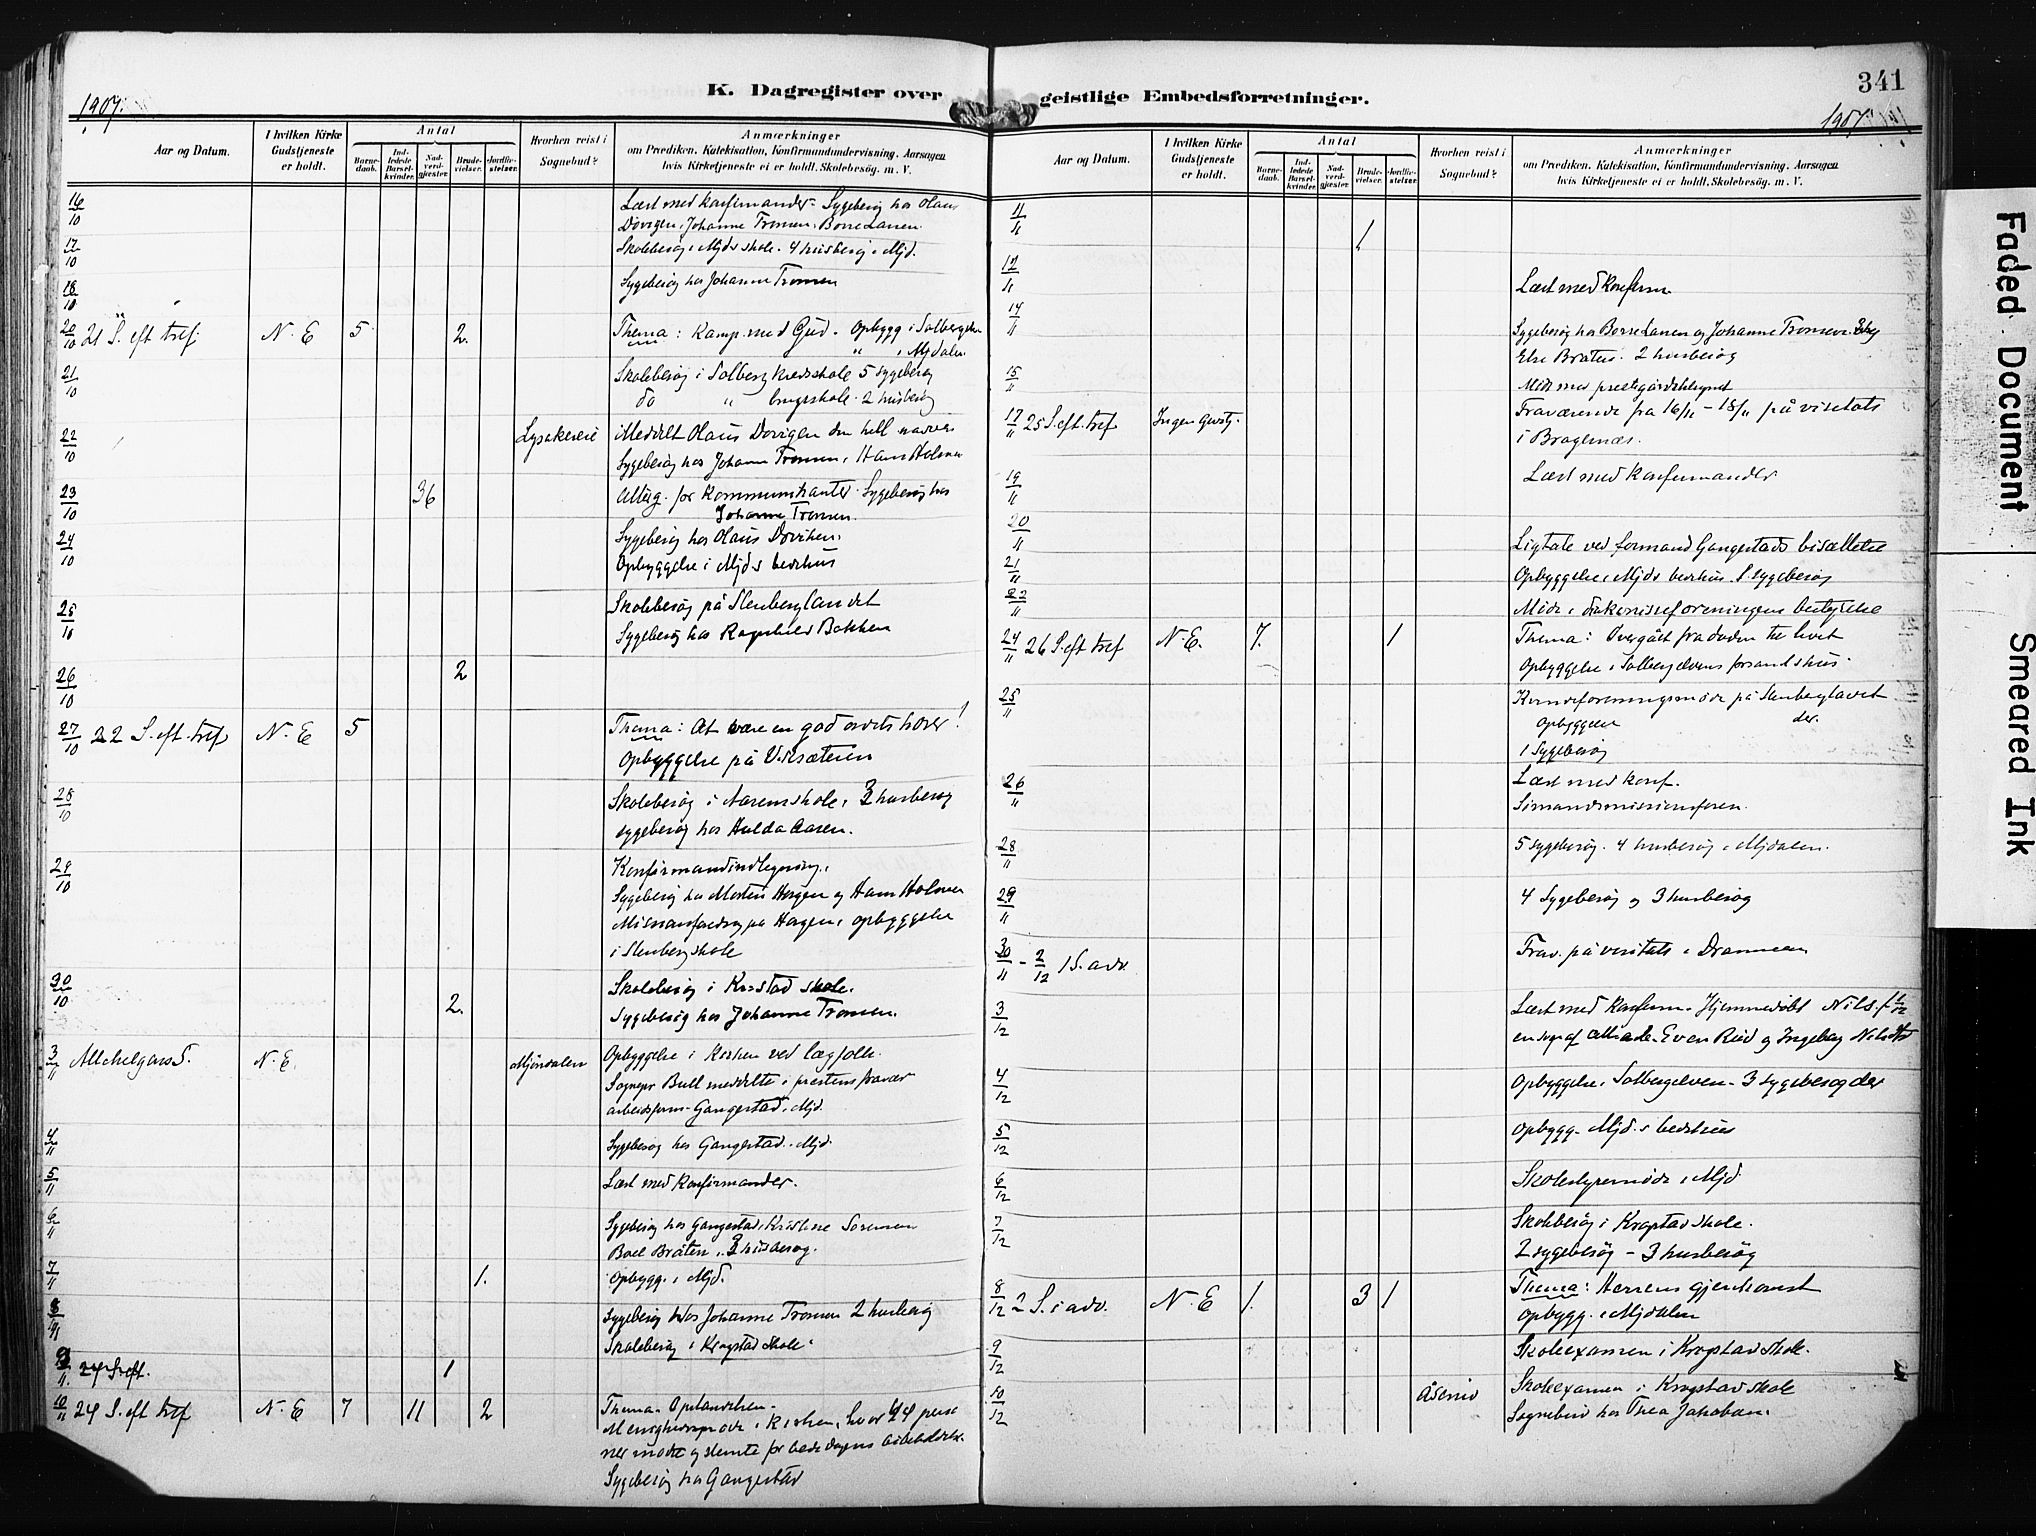 1907.
K. Dagregister over
Aar og Datum.
I hvilken Kirke Gudstjeneste er holdt.
Antal
Barnedaab.
Indledede Barselkvinder.
Nadverdgjester.
Brudevielser.
Jordfæstelser.
Hvorhen reist i Sognebud?
Anmærkninger
om Prædiken, Katekisation, Konfirmandundervisning, Aarsagen
hvis Kirketjeneste ei er holdt, Skolebesøg. m. V.
16/10 Læst med konfirmander. Sygebesøg hos Olaus
Dovigen, Johanne Tronsen, Borre Lansen
17/10 Skolebesøg i Mjds skole. 4 husbesøg i Mjd.
18/10 Sygebesøg hos Johanne Tronsen
20/10 21 S. eft tref. N. E 5 2. Thema: Kamp med Gud. Opbygg i Solbergelven
" i Mjdalen
21/10 Skolebesøg i Solberg kredsskole 5 sygebesøg
do " brugsskole. 2 husbesøg
22/10 Lysakereie Meddelt Olaus Dovigen den hell nadver
Sygebesøg hos Johanne Tronsen, Hans Holmen
23/10 36 Alterg. for Kommunikanter. Sygebesøg hos
Johanne Tronsen.
24/10 Sygebesøg hos Olaus Doviken.
Opbyggelse i Mjds bedehus
25/10 Skolebesøg på Stenberglandet
Sygebesøg hos Ragnhild Bakken
26/10 2
27/10 22 S. eft. tref N. E 5 Thema: At være en god ordets hører!
Opbyggelse på V.ksæteren
28/10 Skolebesøg i Aasen skole, 3 husbesøg
sygebesøg hos Hulda Aasen.
29/10 Konfirmandindtegning.
Sygebesøg hos Morten Horgen og Hans Holmen
på Hagen, opbyggelse
i Stenberg skole
30/10 2. Skolebesøg i Krostad skole.
Sygebesøg hos Johanne Tronsen.
3/11 Allehelgens S. N. E. Mjøndalen Opbyggelse i Kirken ved lægfolk.
Sognepr Bull meddelte i prestens fravær
arbeidsform. Gangestad i Mjd.
4/11 Sygebesøg hos Gangestad i Mjd.
5/11 Læst med Konfirmander.
6/11 Sygebesøg hos Gangestad, Kristine Sørensen
Boel Bråten, 3 husbesøg.
7/11 1. Opbygg. i Mjd.
8/11 Sygebesøg hos Johanne Tronsen 2 husbesøg
Skolebesøg i Krogstad skole
9/11 24 S eft. 1
10/11 24 S. eft tref N. E 7 11 2 Thema. Opstandelsen.
Menighedsmøde i Kirken, hvor 94 perso
ner mødte og stemte for bededagens bibeholdelse.
Sygebesøg hos Gangestad
341
geistlige Embedsforretninger.
1907.
Aar og Datum.
I hvilken Kirke Gudstjeneste er holdt.
Antal
Barnedaab.
Indledede Barselkvinder.
Nadverdgjester.
Brudevielser.
Jordfæstelser.
Hvorhen reist i Sognebud?
Anmærkninger
om Prædiken, Katekisation, Konfirmandundervisning, Aarsagen
hvis Kirketjeneste ei er holdt, Skolebesøg. m. V.
11/11 1
12/11 Læst med Konfirm
14/11 Sygebesøg hos Borre Lansen og Johanne Tronsen
Else Bråten. 2 husbesøg
15/11 Møde med prestegårdstilsynet
17/11 25 S. eft. tref Ingen Gudstj. Fraværende fra 16/11 - 18/11 på visitats
i Bragernæs.
19/11 Læst med konfirmander
20/11 Ligtale ved formand Gangestads bisættelse
21/11 Opbyggelse i Mjds bedehus. S. sygebesøg
22/11 Møde i diakonisseforeningens bestyrelse
24/11 26 S. eft tref N. E. 7. 1 Thema: Overgået fra døden til livet
Opbyggelse i Solbergelvens forsamlshus.
25/11 Kvindeforeningsmøde på Stenberglandet
Opbyggelse der.
1 Sygebesøg
26/11 Læst med konf.
Sømandsmissionsforen.
28/11 5 sygebesøg. 4 husbesøg i Mjdalen.
29/11 4 Sygebesøg og 3 husbesøg
30/11 - 2/12 1 S. adv. Frav. på visitats i Drammen
3/12 Læst med konfirm. Hjemmedøbt Nils f 1/12
en søn af Even Ried og Ingeborg Nilsdtr
4/12 Opbyggelse i Solbergelven. 3 sygebesøg der
5/12 Opbygg. Mjd.s bedehus
6/12 Skolestyremøde i Mjd
7/12 Skolebesøg i Krogstad skole.
2 sygebesøg - 3 husbesøg
8/12 2 S. i adv. N. E 1. 3 1 Thema: Herrens gjenkomst
Opbygg. i Mjdalen
9/12 Skoleexamen i Krogstad skole.
10/12 Åserud Skoleexamen i Krogstad skole
Sognebud hos Thea Jakobsen.
Faded Document
Smeared Ink